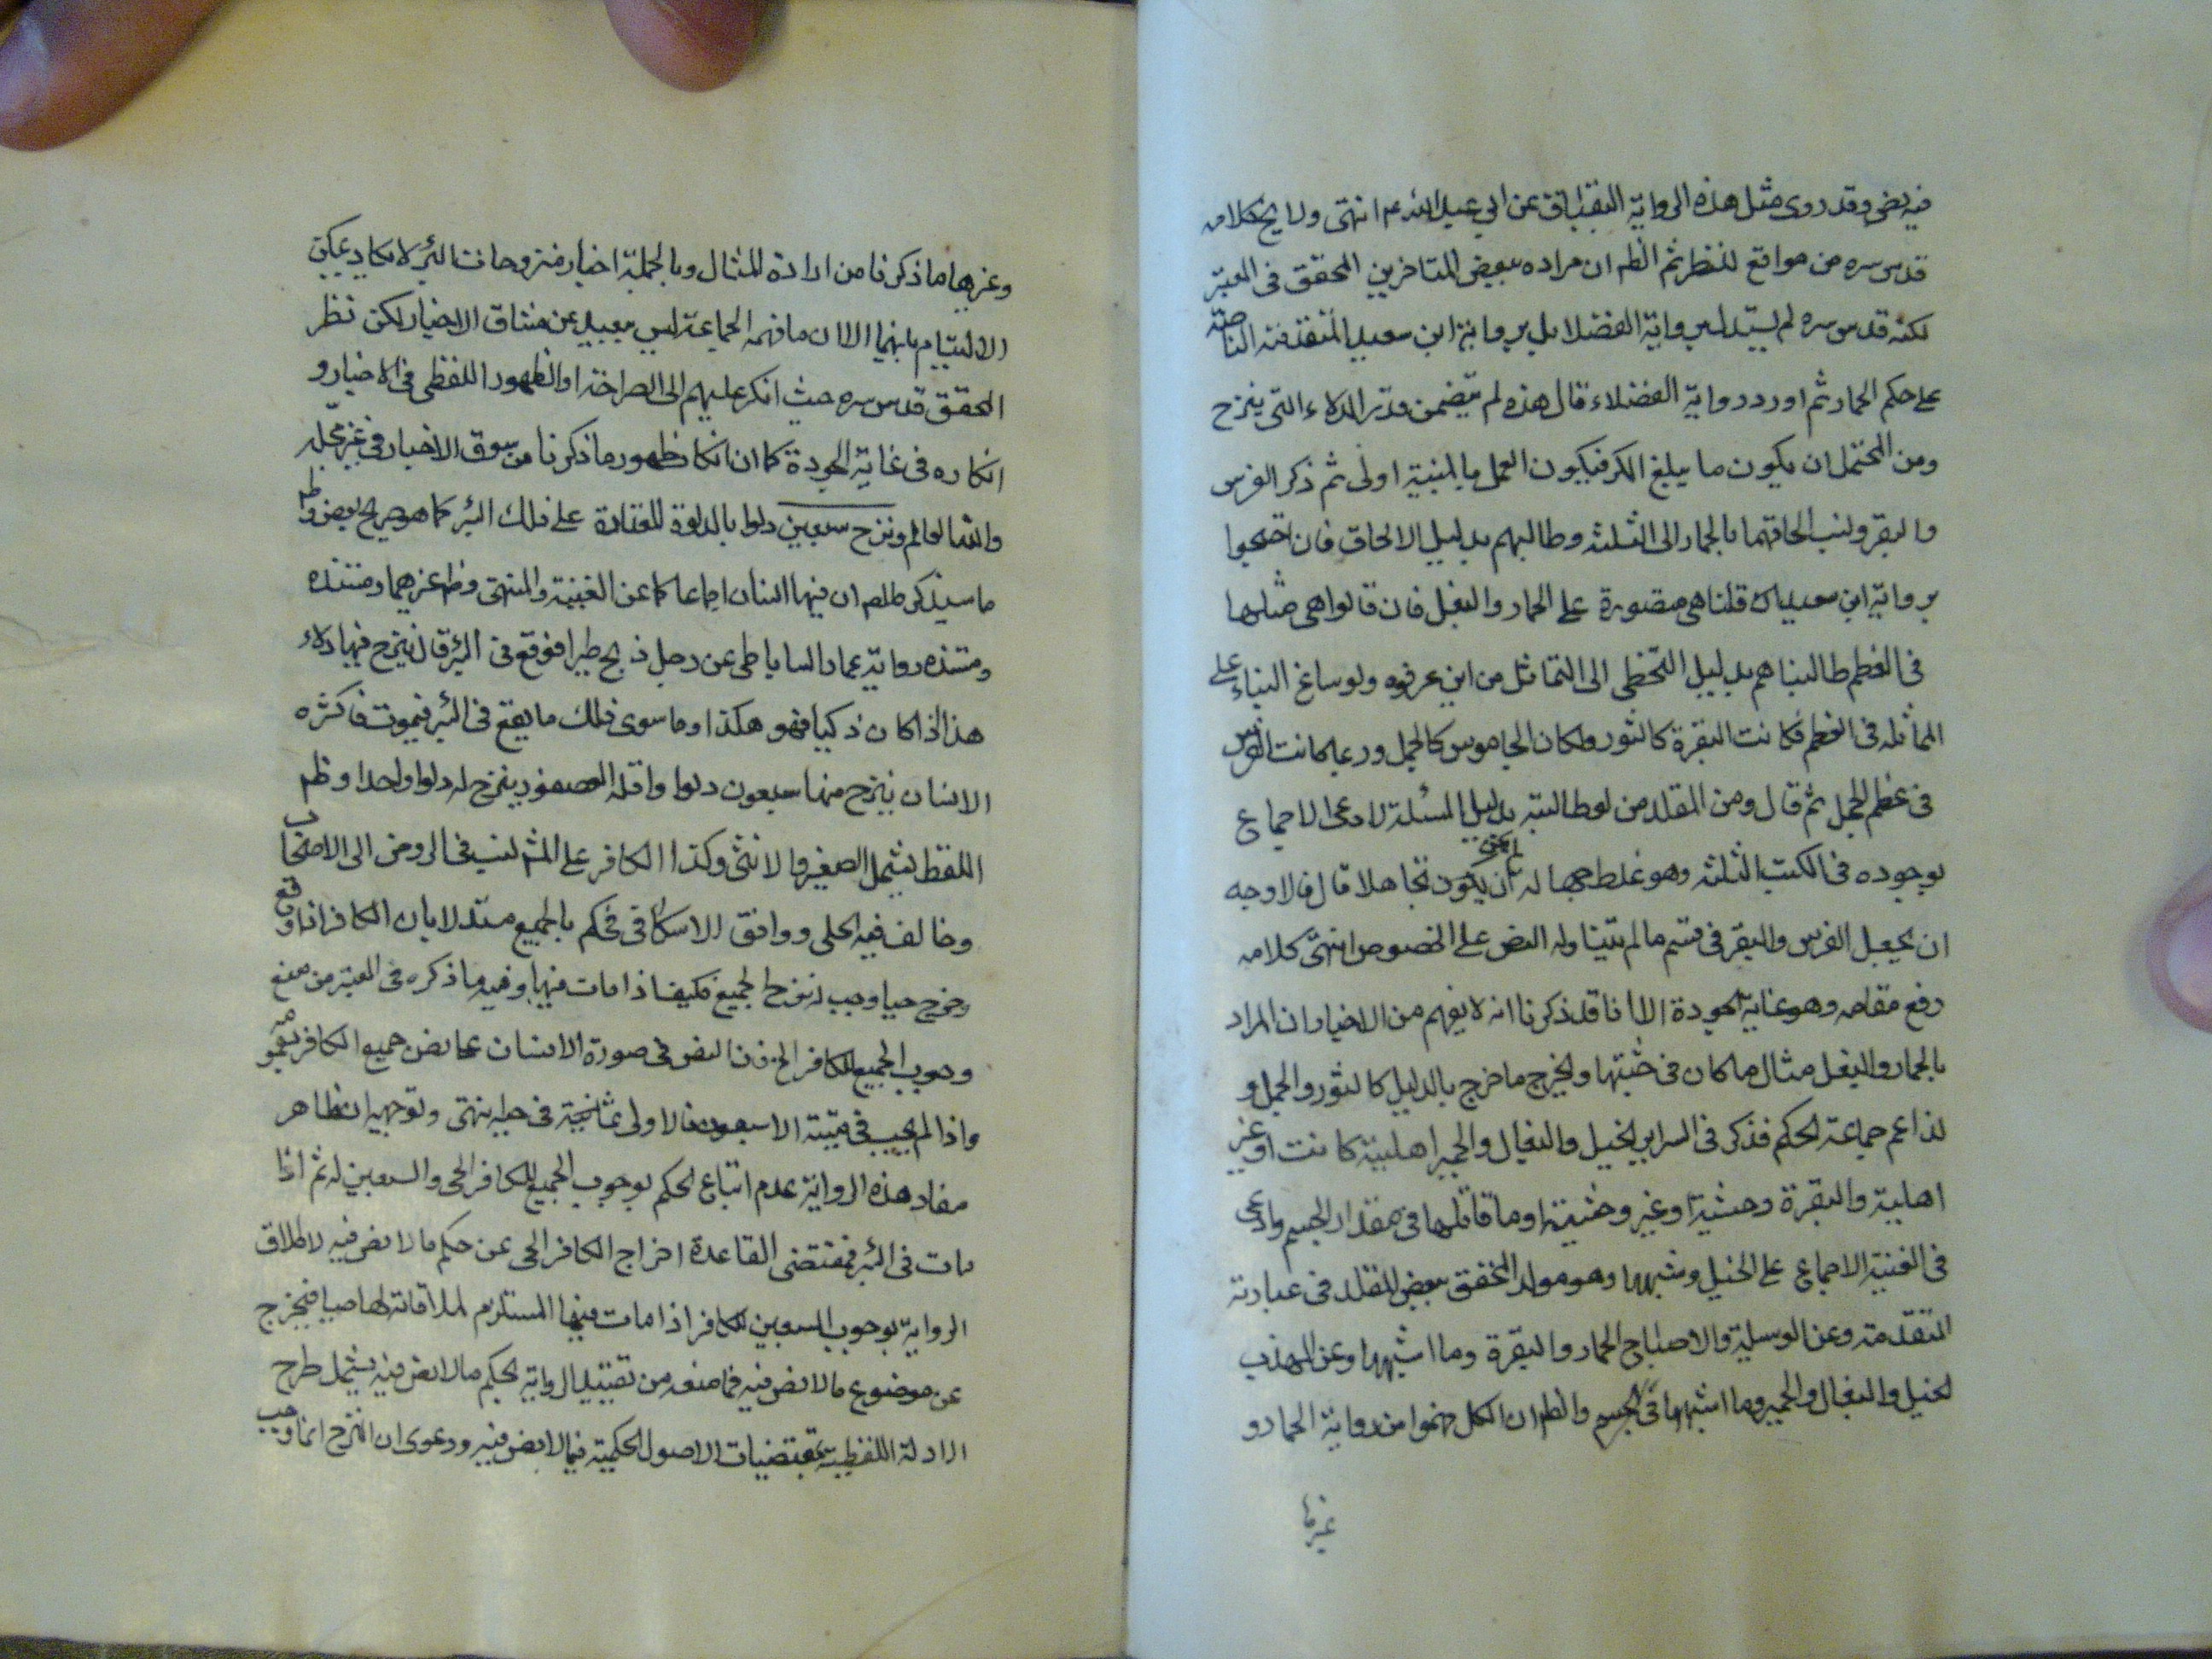 فيه نص وقد روى مثل هذه الرواية البقباق عن ابي عبد الله عم انتهى ولا يخ كلامه
قدس سره من مواقع للنظر ثم الظم ان مراده ببعض المتاخرين المحقق في المعتبر
لكنه قدس سره لم يستدل برواية الفضلا بل برواية ابن سعيد المتقدمة الناصة
على حكم الحمار ثم اورد رواية الفضلاء قال هذه لم يتضمن قدر الدلاء التي ينزح
ومن المحتمل ان يكون ما يبلغ الكر فيكون العمل بالمبنية اولى ثم ذكر الفرس
والبقر ونسب الحاقهما بالحمار الى الثلثه وطالبهم بدليل الالحاق فان احتجوا
برواية ابن سعيد قلنا هي مقصورة على الحمار والبغل فان قالوا هي مثلها
في العظم طالبناهم بدليل التخطى الى التماثل من اين عرفوه ولو ساغ البناء على
المماثله في العظم فكانت البقرة كالثور ولكان الجاموس كالجمل وربما كانت الفرس
في عظم الجمل ثم قال ومن المقلده من لو طالبته بدليل المسئلة لادعى الاجماع
لوجوده في الكتب الثلثه وهو غلط جهاله ان لم يكون تجاهلا قال فالاوجه
ان يجعل الفرس والبقر في قسم ما لم يتناوله النص على الخصوص انتهى كلامه
رفع مقامه وهو غاية الجودة الا انا قد ذكرنا انه لا يفهم من الاخبار ان المراد
بالحمار والبغل مثال ما كان في جثتها ولخرج ما خرج بالدليل كالثور والجمل و
لذا عم جماعة الحكم فذكر في السرائر الخيل والبغال والحمير اهلية كانت او غير
اهلية والبقرة وحشية او غير وحشية او ما قاتلها في مقدار الجسم وادعى
في الغنية الاجماع على الخيل وشبهها وهو مولد المحقق ببعض المقلد في عبارته
المتقدمة وعن الوسيلة والاصباح الحمار والبقرة وما اشبهها وعن المهذب
الخيل والبغال والحمير وما اشبهها في الجسم والظم ان الكل فهموا من رواية الحمار و
غيرها
وغيرها ما ذكرنا من ارادة المثال وبالجملة اخبار منزوحات البئر لا يكاد يمكن
الالتيام بينها الا ان ما فهمه الجماعة ليس ببعيد عن مساق الاخبار لكن نظر
المحقق قدس سره حيث انكر عليهم الى الصراحة او الظهور اللفظى في الاخبار و
انكاره في غاية الجودة كما ان انكار ظهور ما ذكرنا من سوق الاخبار في غير محله
والله العالم ونزح سبعين دلوا بالدلوة المعتادة على ذلك البئر كما هو صريح بعض وظم
ما سيذكر طلم ان فيها النان اجماعا كما عن الغنية والمنتهى وظم غيرهما ومستنده
ومستنده رواية عمار الساباطى عن رجل ذبح طيرا فوقع في البئر قال ينزح منها دلاء
هذا اذا كان ذكيا فهو هكذا وما سوى ذلك ما يقع في البئر فيموت فاكثره
الانسان ينزح منها سبعون دلوا واقله العصفور ينزح له دلوا واحدا وظم
اللفظ يشمل الصغير والانثى وكذا الكافر على المشر نسب في الروض الى الاصحاب
وخالف فيه الحلى ووافق الاسكافى فحكم بالجميع مستدلا بان الكافر اذا وقع
وخرج حيا وجب له نزح الجميع فكيف اذا مات فيها وفيه ما ذكره في المعتبر من منع
وجوب الجميع للكافر الحى فان النص في صورة الانسان عما نص جميع الكافر بعمومه
واذا لم يجب في ميتة الا سبعون فالاولى بمانجبه في حيه ينتهى وتوجيهه ان ظاهر
مفاد هذه الرواية عدم اتباع الحكم بوجوب الجميع للكافر الحى والسبعين له ثم اذا
مات في البئر فمقتضى القاعدة اخراج الكافر الحى عن حكم ما لا نص فيه لاطلاق
الرواية بوجوب السبعين للكافر اذا مات فيها المستلزم لملاقاته لها حيا فيخرج
عن موضوع ما لا نص فيه فما صنعه من تقييد الرواية لحكم ما لا نص فيه يشمل طرح
الادلة اللفظيه بمقتضيات الاصول الحكمية فيما لا نص فيه ودعوى ان النزح انما وجب